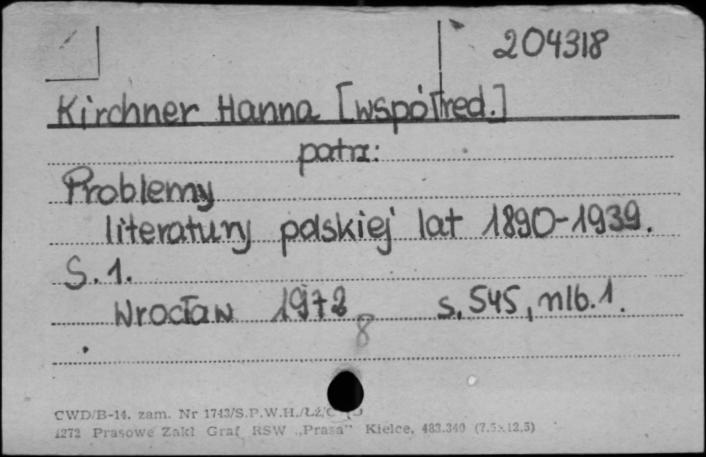 204318
Kirchner Hanna [współred.]
patrz:
Problemy
literatury polskiej lat 1890-1939.
S. 1.
Wrocław 1972 s. 545, nlb. 1.
8
CWD/B-14. zam. Nr 1743/S.P.W.H./Łź/C
1272 Prasowe Zakł Graf RSW „Prasa” Kielce, 483.340 (7.5×12.5)